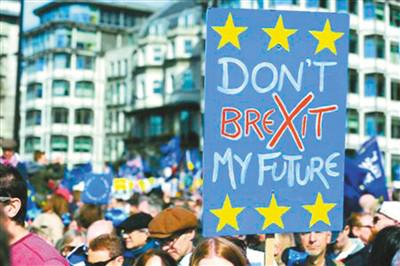 DON'T
BREXIT
MY FUTURE